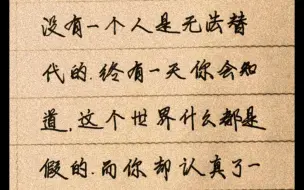 没有一个人是无法替
代的.终有一天你会知
道,这个世界什么都是
假的.而你却认真了一